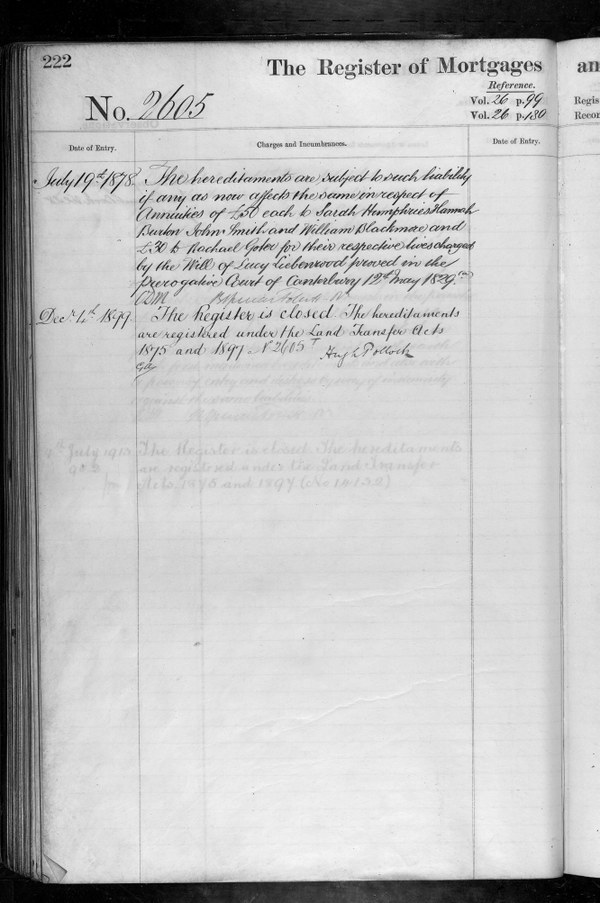 222
The Register of Mortgages
an
Reference.
No. 2605
Vol. 26 p. 99
Vol. 26 p. 180
Regis
Recor
Date of Entry.
Charges and Incumbrances.
Date of Entry.
July 19th 1878
The hereditaments are subject to such liability
if any as now affects the same in respect of
Annuities of £50 each to Sarah Hemphries Hannah
Barton John Smith and William Blackmore and
£30 to Rachael for their respective lives charged
by the Will of Lucy proved in the
Prerogative Court of Canterbury 12th May 1829.
Decr 4th 1899
The Register is closed The hereditaments
are registered under the Land Transfer Acts
1875 and 1897 No 2605 T
Hugh Pollock
July 1913
The Register is closed The hereditaments
are registered under the Land Transfer
Acts 1875 and 1897